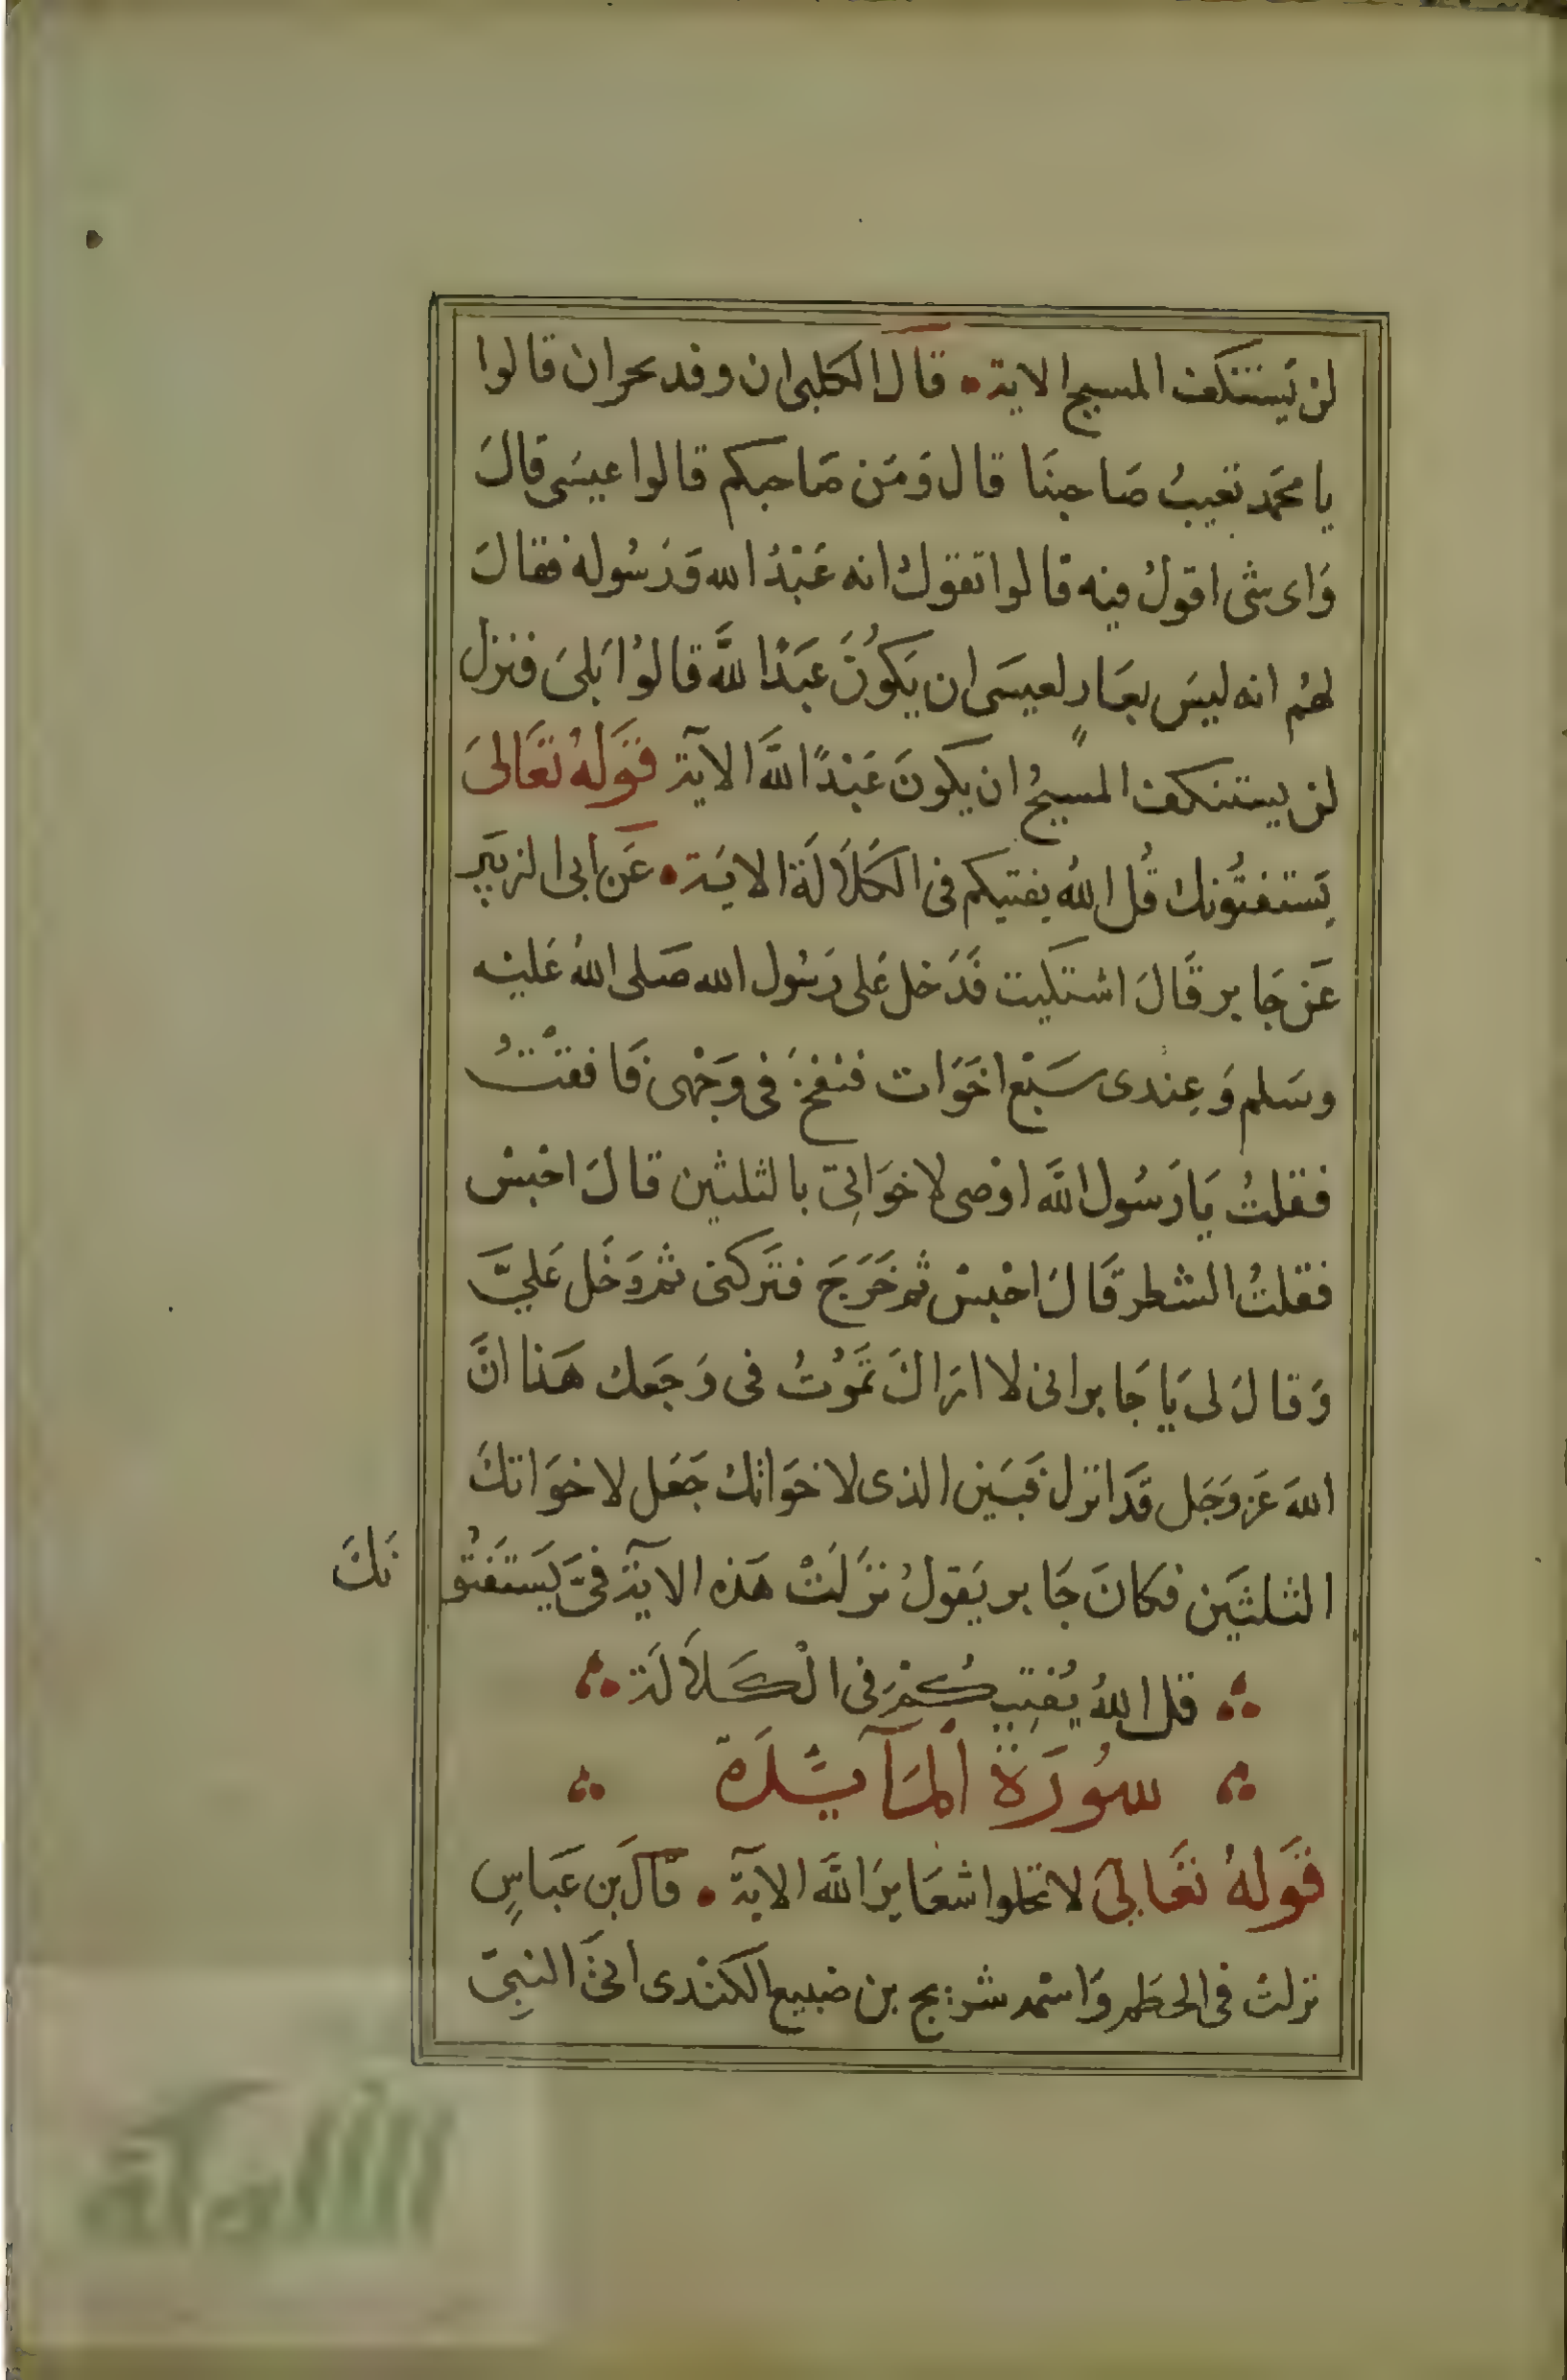 لن يستنكف المسيح الاية • قال الكلبى ان وفد نجران قالوا
يا محمد تعيبُ صَاحبنَا قال وَمَن صَاحبكم قالوا عيسَى قالَ
وَاى شى اقولُ فيه قالوا تقولُ انه عَبْدُ الله وَرَسُوله فقالَ
لهُم انه ليسَ بعَارٍ لعيسَى ان يَكوُنَ عَبَدًا للَّه قالوُا بَلىَ فنزل
لن يستنكف المسيحُ ان يكونَ عَبْدًا للَّه الآية قوَلهُ تعَالىَ
يَستفتُونك قُل اللهُ يفتيكم فى الكَلاَلَة الايَة • عَن ابى الزبَير
عَن جَابر قَالَ اشتكيت فَدَخل عَلى رَسُول الله صَلى اللهُ عَليْه
وسَلم وَعِنْدى سَبْع اخَوَات فنفخَ فى وَجْهى فَافقتُ
فقلتُ يَا رَسُول اللَّه اوْصى لاخوَاتِى بالثلثين قالَ احْبسْ
فقلتُ الشطر قَالَ احْبسْ ثم خَرَجَ فتَركنى ثم دَخَل عَليَّ
وَقالَ لى يَا جَابر انى لا ارَاكَ تمَوْتُ فى وَجَعك هَذا انَّ
اللهَ عَز وَجَل قَد انزل فبَيَن الذى لاخوَاتكَ جَعَل لاخوَاتكَ
الثلثَين فكانَ جَابر يَقولُ نزَلَتْ هَذه الآية فىَّ يَستَفتُو نَكَ
قل اللهُ يُفتِيكُمْ فى الْكَلاَلَة
سوُرَة اَلمَآئِدَة
قوَلهُ تعَالىَ لا تحلوا شعَايرَ اللَّه الآية • قَالَ بن عَبَاسٍ
نزلت فى الحطم وَاسْمه شريح بن ضبيع الكنْدى اتىَ النبِىّ